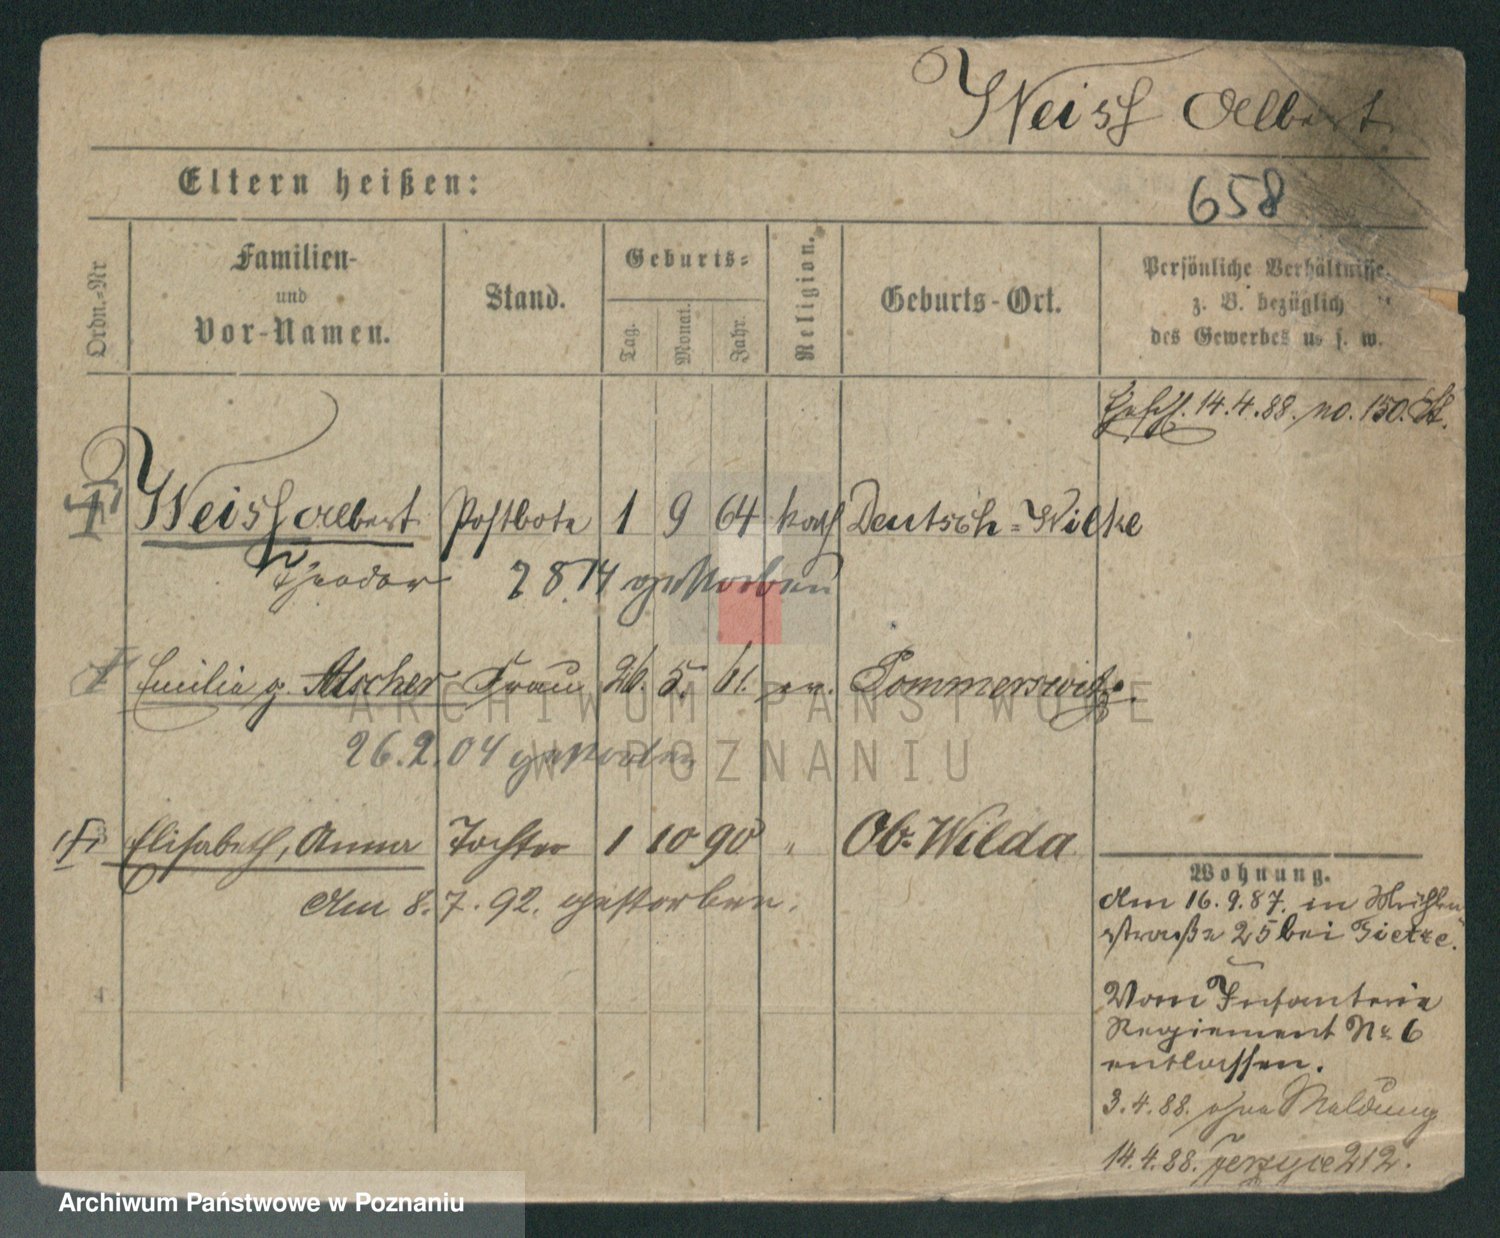 Weiss Albert
Eltern heißen:
658
Ordn.-Nr
Familien-
und
Vor-Namen.
Stand.
Geburts-
Tag.
Monat.
Jahr.
Religion.
Geburts-Ort.
Persönliche Verhältnisse,
z. B. bezüglich
des Gewerbes u. s. w.
14.4.88. no. 150. St.
Weiss Albert Postbote 1 9 64 kath Deutsch-Wilke
Theodor 2 8.14 gestorben
Emilie g. Ascher Frau 26. 5. 61. ev. Pommerswitz.
26.2.04 gestorben
Elisabeth, Anna Tochter 1 10 90 " Ob. Wilda
Am 8.7.92. gestorben.
Wohnung.
Am 16.9.87. in Mühlen
straße 25 bei Tietze.
Vom Infanterie
Regiement Nr. 6
entlassen.
3.4.88. ohne Meldung
14.4.88. Jerzyce 212.
ARCHIWUM PAŃSTWOWE
W POZNANIU
Archiwum Państwowe w Poznaniu